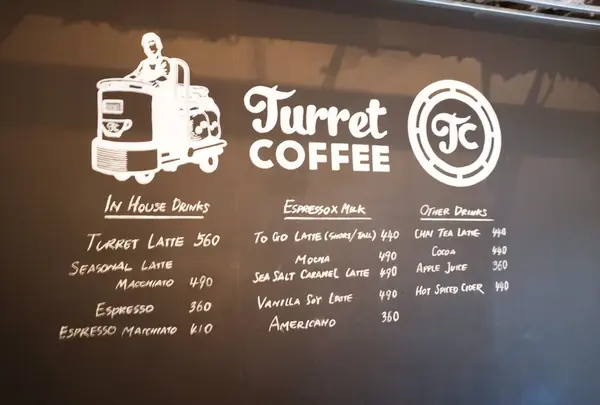 Turret
COFFEE
TC
IN HOUSE DRINKS
TURRET LATTE 560
SEASONAL LATTE
MACCHIATO 490
ESPRESSO 360
ESPRESSO MATCHIATO 410
ESPRESSO X MILK
TO GO LATTE (SHORT/TALL) 440
MOCHA 490
SEA SALT CARAMEL LATTE 490
VANILLA SOY LATTE 490
AMERICANO 360
OTHER DRINKS
CHAI TEA LATTE 440
COCOA 440
APPLE JUICE 360
HOT SPICED CIDER 440